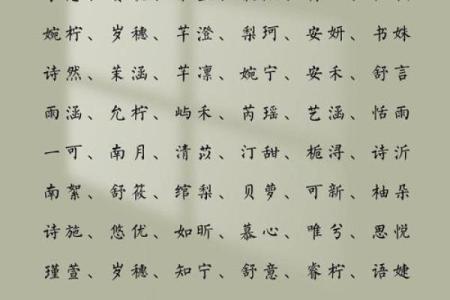 婉柠、岁穗、芊澄、梨珂、安妍、书妹
诗然、茉涵、芊凛、婉宁、安禾、舒言
雨涵、允柠、屿禾、芮瑶、艺涵、恬雨
一可、南月、清苡、汀甜、栀浔、诗沂
南絮、舒筱、绾梨、贝萝、可新、柚朵
诗施、悠优、如昕、慕心、唯兮、思悦
瑾萱、岁穗、知宁、舒意、睿柠、语婕